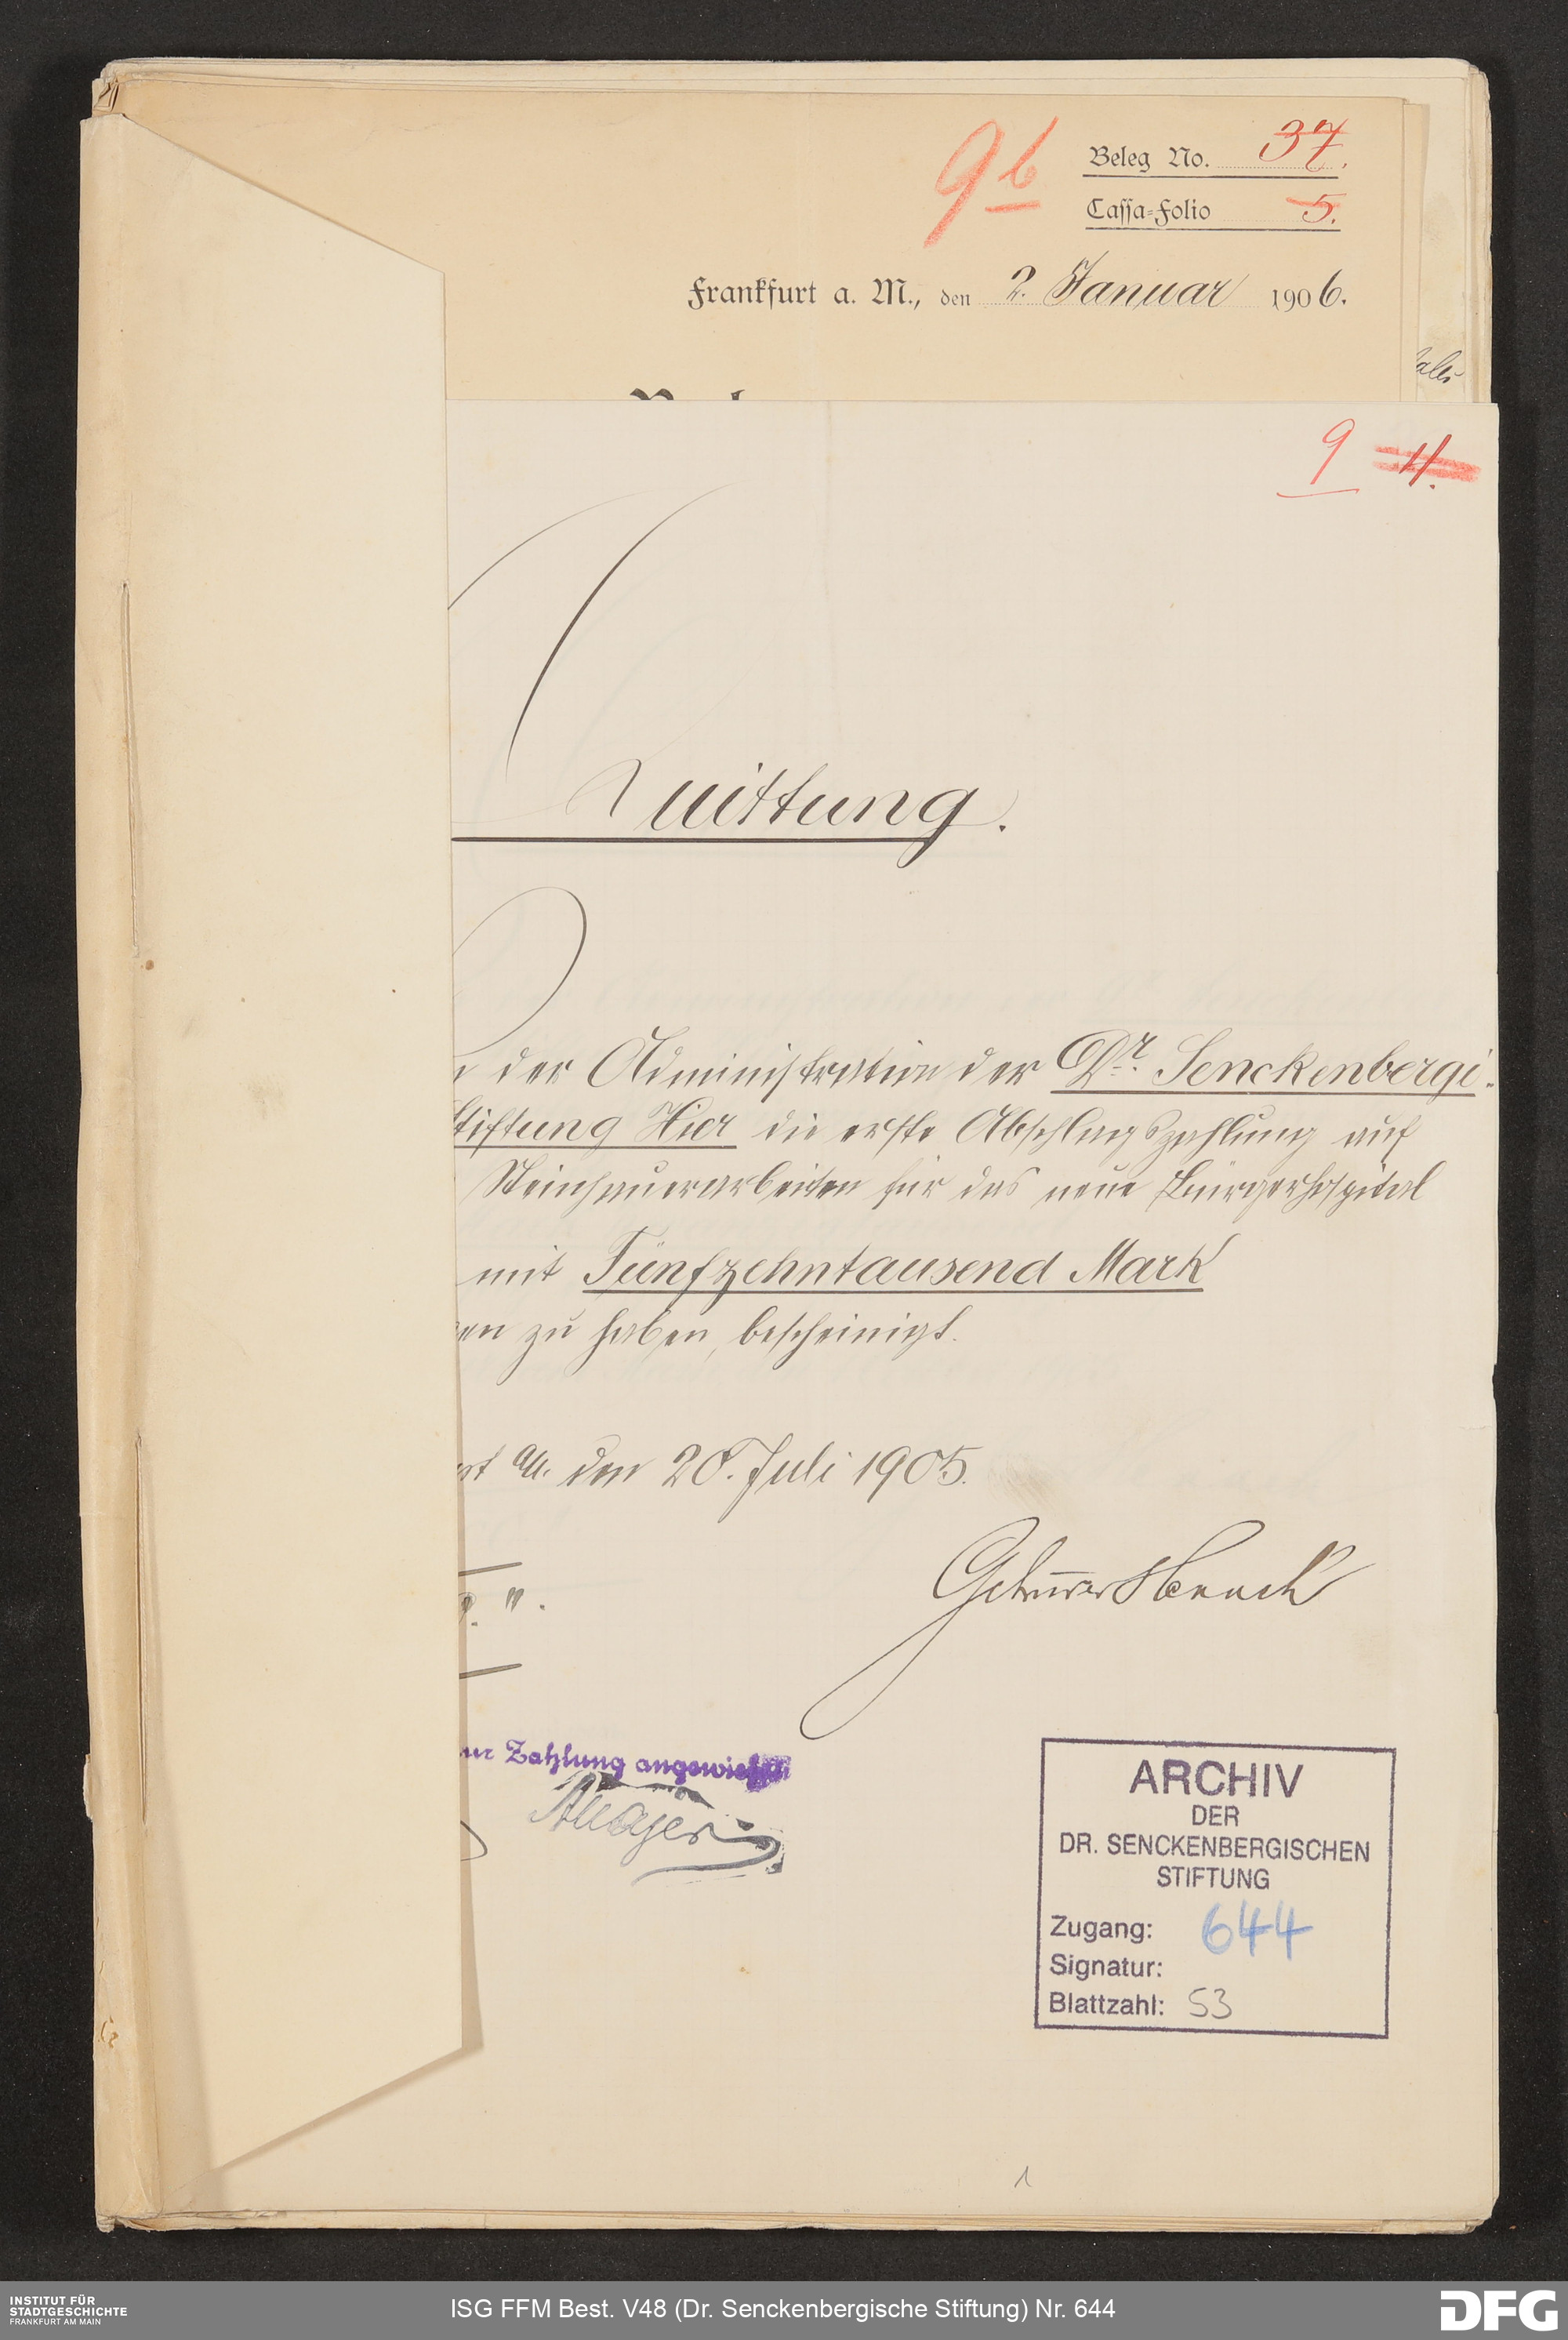 9b
Beleg No. 37.
Cassa-Folio 5.
Frankfurt a. M., den 2. Januar 1906.
9 11.
Quittung.
der Administration der Dr. Senckenbergi-
Stiftung Hier die erste Abschlagszahlung auf
Steinhauerarbeiten für das neue Bürgerhospital
mit Fünfzehntausend Mark
en zu haben, bescheinigt.
rt a/M. den 20. Juli 1905.
ur Zahlung angewiesen
ARCHIV
DER
DR. SENCKENBERGISCHEN
STIFTUNG
Zugang: 644
Signatur:
Blattzahl: 53
1
INSTITUT FÜR
STADTGESCHICHTE
FRANKFURT AM MAIN
ISG FFM Best. V48 (Dr. Senckenbergische Stiftung) Nr. 644
DFG